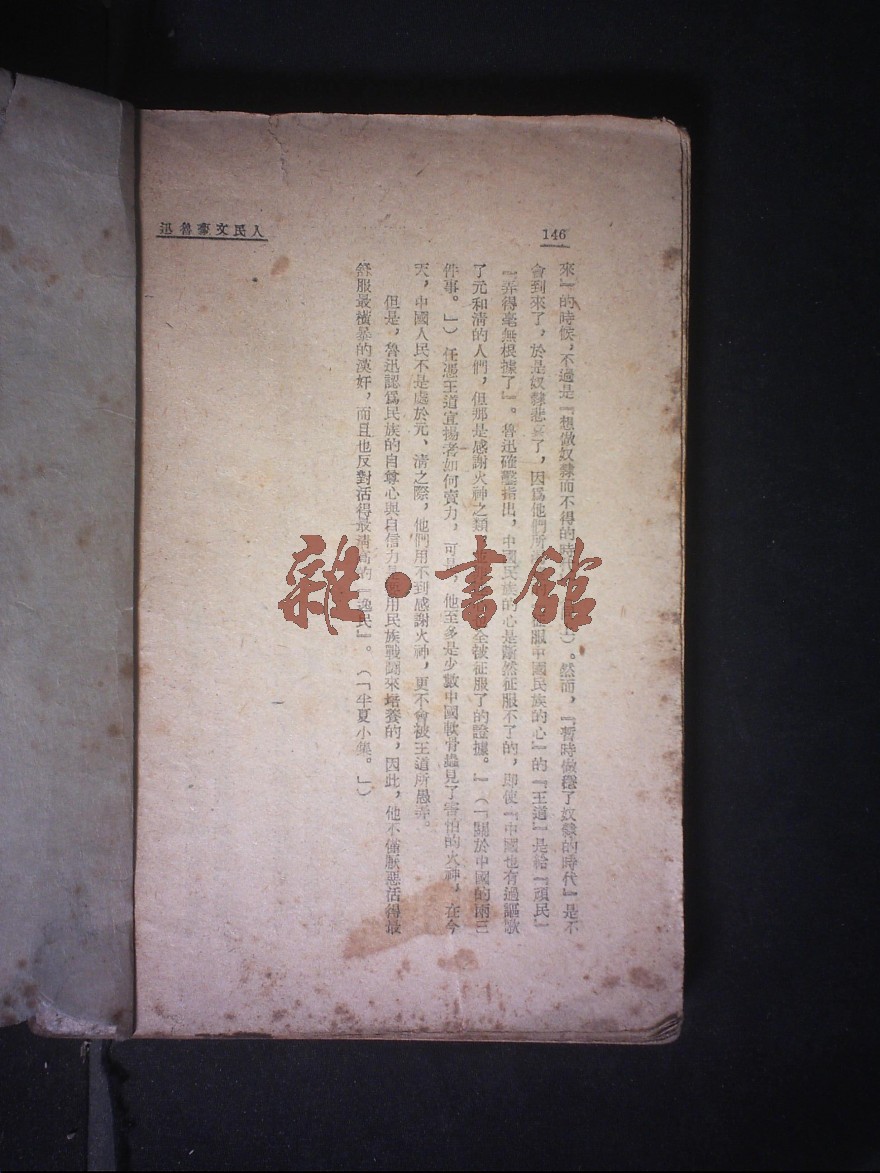 146
人民文豪魯迅
來』的時候，不過是『想做奴隸而不得的時代
）。然而，『暫時做穩了奴隸的時代』是不
會到來了，於是奴隸悲哀了，因爲他們所
征服中國民族的心』的『王道』是給『頑民』
『弄得毫無根據了』。魯迅確鑿指出，中國民族的心是斷然征服不了的，即使『中國也有過謳歌
了元和清的人們，但那是感謝火神之類，
全被征服了的證據。』（「關於中國的兩三
件事。」）任憑王道宣揚者如何賣力，可是，他至多是少數中國軟骨蟲見了害怕的火神，在今
天，中國人民不是處於元、清之際，他們用不到感謝火神，更不會被王道所愚弄。
但是，魯迅認爲民族的自尊心與自信力是要用民族戰鬪來培養的，因此，他不僅厭惡活得最
舒服最橫暴的漢奸，而且也反對活得最清高的『逸民』。（「半夏小集。」）
雜·書館